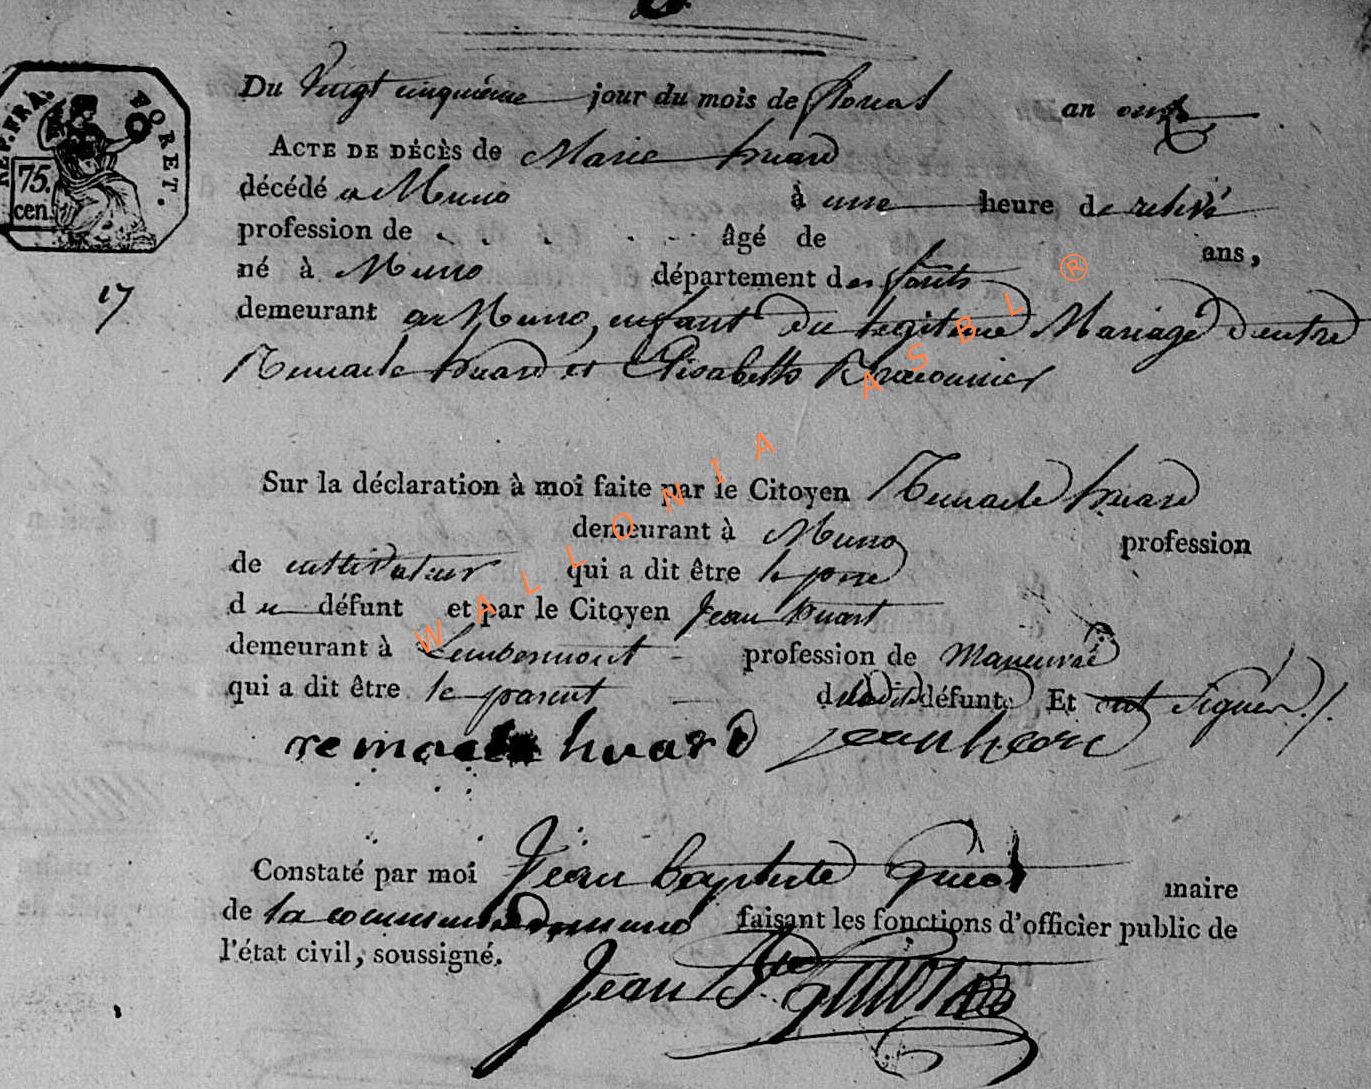 REP. FRA. FORET.
75.
cen.
17
Du Vingt cinquième jour du mois de floreal an onze
ACTE DE DÉCÈS de Marie huard
décédé a Muno à une heure de
profession de âgé de ans,
né à Muno département des forêts
demeurant a Muno, enfant du legitime Mariage d'entre
Remacle huard et Elisabeth
Sur la déclaration à moi faite par le Citoyen Remacle huard
demeurant à Muno profession
de cultivateur qui a dit être le pere
du défunt et par le Citoyen Jean huart
demeurant à Lambermont profession de Maneuvre
qui a dit être le parent défunte Et ont signés./.
remacle huard jean
Constaté par moi Jean baptiste maire
de la commune de muno faisant les fonctions d'officier public de
l'état civil, soussigné.
Jean Bte
WALLONIA ASBL ®